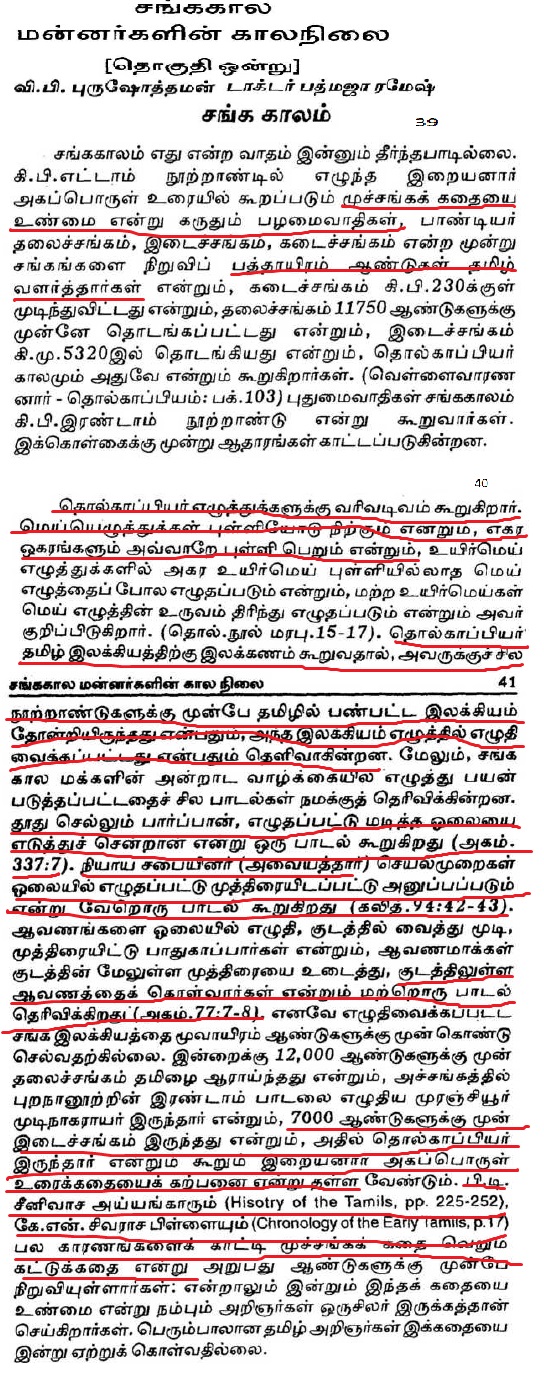 சங்ககால
மன்னர்களின் காலநிலை
[தொகுதி ஒன்று]
வி.பி. புருஷோத்தமன் டாக்டர் பத்மஜா ரமேஷ்
சங்க காலம்
39
சங்ககாலம் எது என்ற வாதம் இன்னும் தீர்ந்தபாடில்லை.
கி.பி.எட்டாம் நூற்றாண்டில் எழுந்த இறையனார்
அகப்பொருள் உரையில் கூறப்படும் முச்சங்கக் கதையை
உண்மை என்று கருதும் பழமைவாதிகள், பாண்டியர்
தலைச்சங்கம், இடைச்சங்கம், கடைச்சங்கம் என்ற மூன்று
சங்கங்களை நிறுவிப் பத்தாயிரம் ஆண்டுகள் தமிழ்
வளர்த்தார்கள் என்றும், கடைச்சங்கம் கி.பி.230க்குள்
முடிந்துவிட்டது என்றும், தலைச்சங்கம் 11750 ஆண்டுகளுக்கு
முன்னே தொடங்கப்பட்டது என்றும், இடைச்சங்கம்
கி.மு.5320இல் தொடங்கியது என்றும், தொல்காப்பியர்
காலமும் அதுவே என்றும் கூறுகிறார்கள். (வெள்ளைவாரண
னார் - தொல்காப்பியம்: பக்.103) புதுமைவாதிகள் சங்ககாலம்
கி.பி.இரண்டாம் நூற்றாண்டு என்று கூறுவார்கள்.
இக்கொள்கைக்கு மூன்று ஆதாரங்கள் காட்டப்படுகின்றன.
40
தொல்காப்பியர் எழுத்துக்களுக்கு வரிவடிவம் கூறுகிறார்.
மெய்யெழுத்துக்கள் புள்ளியோடு நிற்கும் என்றும், எகர
ஒகரங்களும் அவ்வாறே புள்ளி பெறும் என்றும், உயிர்மெய்
எழுத்துக்களில் அகர உயிர்மெய் புள்ளியில்லாத மெய்
எழுத்தைப் போல எழுதப்படும் என்றும், மற்ற உயிர்மெய்கள்
மெய் எழுத்தின் உருவம் திரிந்து எழுதப்படும் என்றும் அவர்
குறிப்பிடுகிறார். (தொல்.நூல் மரபு.15-17). தொல்காப்பியர்
தமிழ் இலக்கியத்திற்கு இலக்கணம் கூறுவதால், அவருக்குச் சில
சங்ககால மன்னர்களின் கால நிலை 41
நூற்றாண்டுகளுக்கு முன்பே தமிழில் பண்பட்ட இலக்கியம்
தோன்றியிருந்தது என்பதும், அந்த இலக்கியம் எழுத்தில் எழுதி
வைக்கப்பட்டது என்பதும் தெளிவாகின்றன. மேலும், சங்க
கால மக்களின் அன்றாட வாழ்க்கையில் எழுத்து பயன்
படுத்தப்பட்டதைச் சில பாடல்கள் நமக்குத் தெரிவிக்கின்றன.
தூது செல்லும் பார்ப்பான், எழுதப்பட்டு மடித்த ஓலையை
எடுத்துச் சென்றான் என்று ஒரு பாடல் கூறுகிறது (அகம்.
337:7). நியாய சபையினர் (அவையத்தார்) செயல்முறைகள்
ஓலையில் எழுதப்பட்டு முத்திரையிடப்பட்டு அனுப்பப்படும்
என்று வேறொரு பாடல் கூறுகிறது (கலித்.94:42-43).
ஆவணங்களை ஓலையில் எழுதி, குடத்தில் வைத்து மூடி,
முத்திரையிட்டு பாதுகாப்பார்கள் என்றும், ஆவணமாக்கள்
குடத்தின் மேலுள்ள முத்திரையை உடைத்து, குடத்திலுள்ள
ஆவணத்தைக் கொள்வார்கள் என்றும் மற்றொரு பாடல்
தெரிவிக்கிறது (அகம்.77:7-8). எனவே எழுதிவைக்கப்பட்ட
சங்க இலக்கியத்தை மூவாயிரம் ஆண்டுகளுக்கு முன் கொண்டு
செல்வதற்கில்லை. இன்றைக்கு 12,000 ஆண்டுகளுக்கு முன்
தலைச்சங்கம் தமிழை ஆராய்ந்தது என்றும், அச்சங்கத்தில்
புறநானூற்றின் இரண்டாம் பாடலை எழுதிய முரஞ்சியூர்
முடிநாகராயர் இருந்தார் என்றும், 7000 ஆண்டுகளுக்கு முன்
இடைச்சங்கம் இருந்தது என்றும், அதில் தொல்காப்பியர்
இருந்தார் என்றும் கூறும் இறையனார் அகப்பொருள்
உரைக்கதையைக் கற்பனை என்று தள்ள வேண்டும். பி.டி.
சீனிவாச அய்யங்காரும் (Hisotry of the Tamils, pp. 225-252),
கே.என். சிவராச பிள்ளையும் (Chronology of the Early Tamils, p.17)
பல காரணங்களைக் காட்டி முச்சங்கக் கதை வெறும்
கட்டுக்கதை என்று அறுபது ஆண்டுகளுக்கு முன்பே
நிறுவியுள்ளார்கள்: என்றாலும் இன்றும் இந்தக் கதையை
உண்மை என்று நம்பும் அறிஞர்கள் ஒருசிலர் இருக்கத்தான்
செய்கிறார்கள். பெரும்பாலான தமிழ் அறிஞர்கள் இக்கதையை
இன்று ஏற்றுக் கொள்வதில்லை.